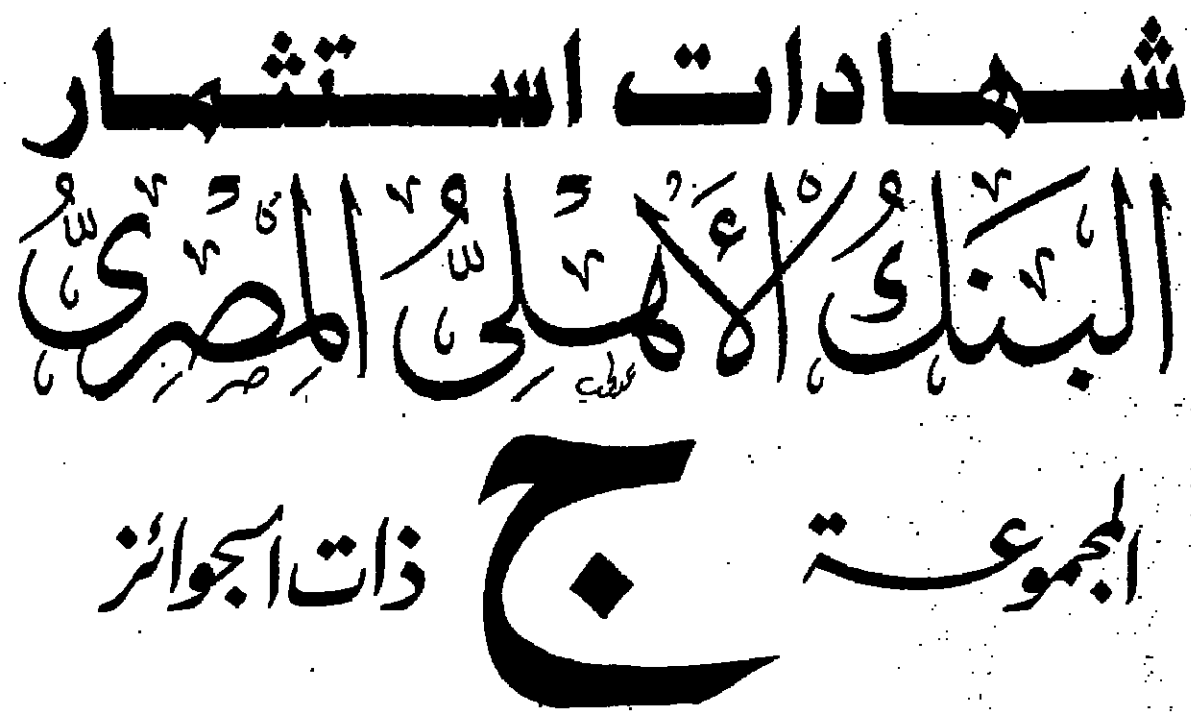 شهادات استثمار
البنك الأهلى المصرى
المجموعة ج ذات الجوائز